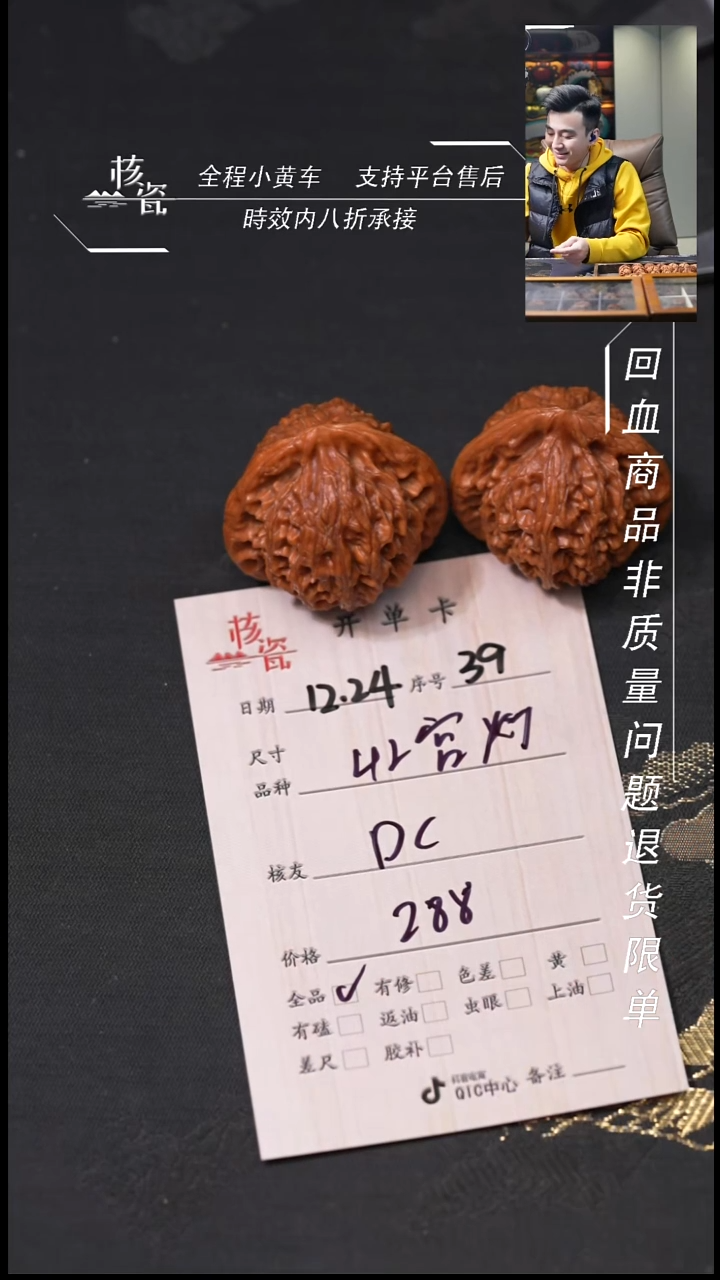 核瓷
全程小黄车 支持平台售后
時效内八折承接
回血商品非质量问题退货限单
核瓷
开单卡
日期 12.24 序号 39
尺寸
品种 42宫灯
核友 DC
价格 288
全品 ✓ 有修 色差 黄
有磕 返油 虫眼 上油
差尺 胶补
QIC中心 备注